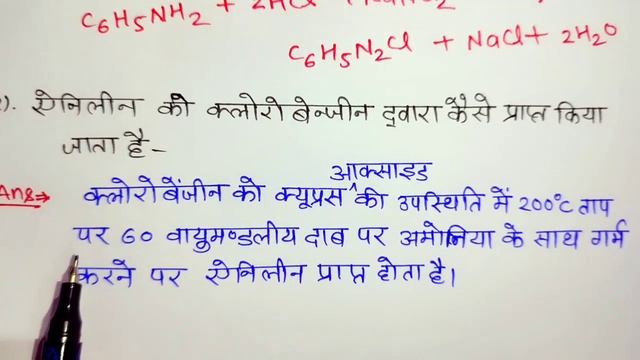 C6H5NH2 + 2HCl
C6H5N2Cl + NaCl + 2H2O
). ऐनिलीन को क्लोरो बेन्जीन द्वारा कैसे प्राप्त किया
जाता है -
Ans⇒ क्लोरो बेंजीन को क्यूप्रस आक्साइड की उपस्थिति में 200°C ताप
पर 60 वायुमण्डलीय दाब पर अमोनिया के साथ गर्म
करने पर ऐनिलीन प्राप्त होता है।